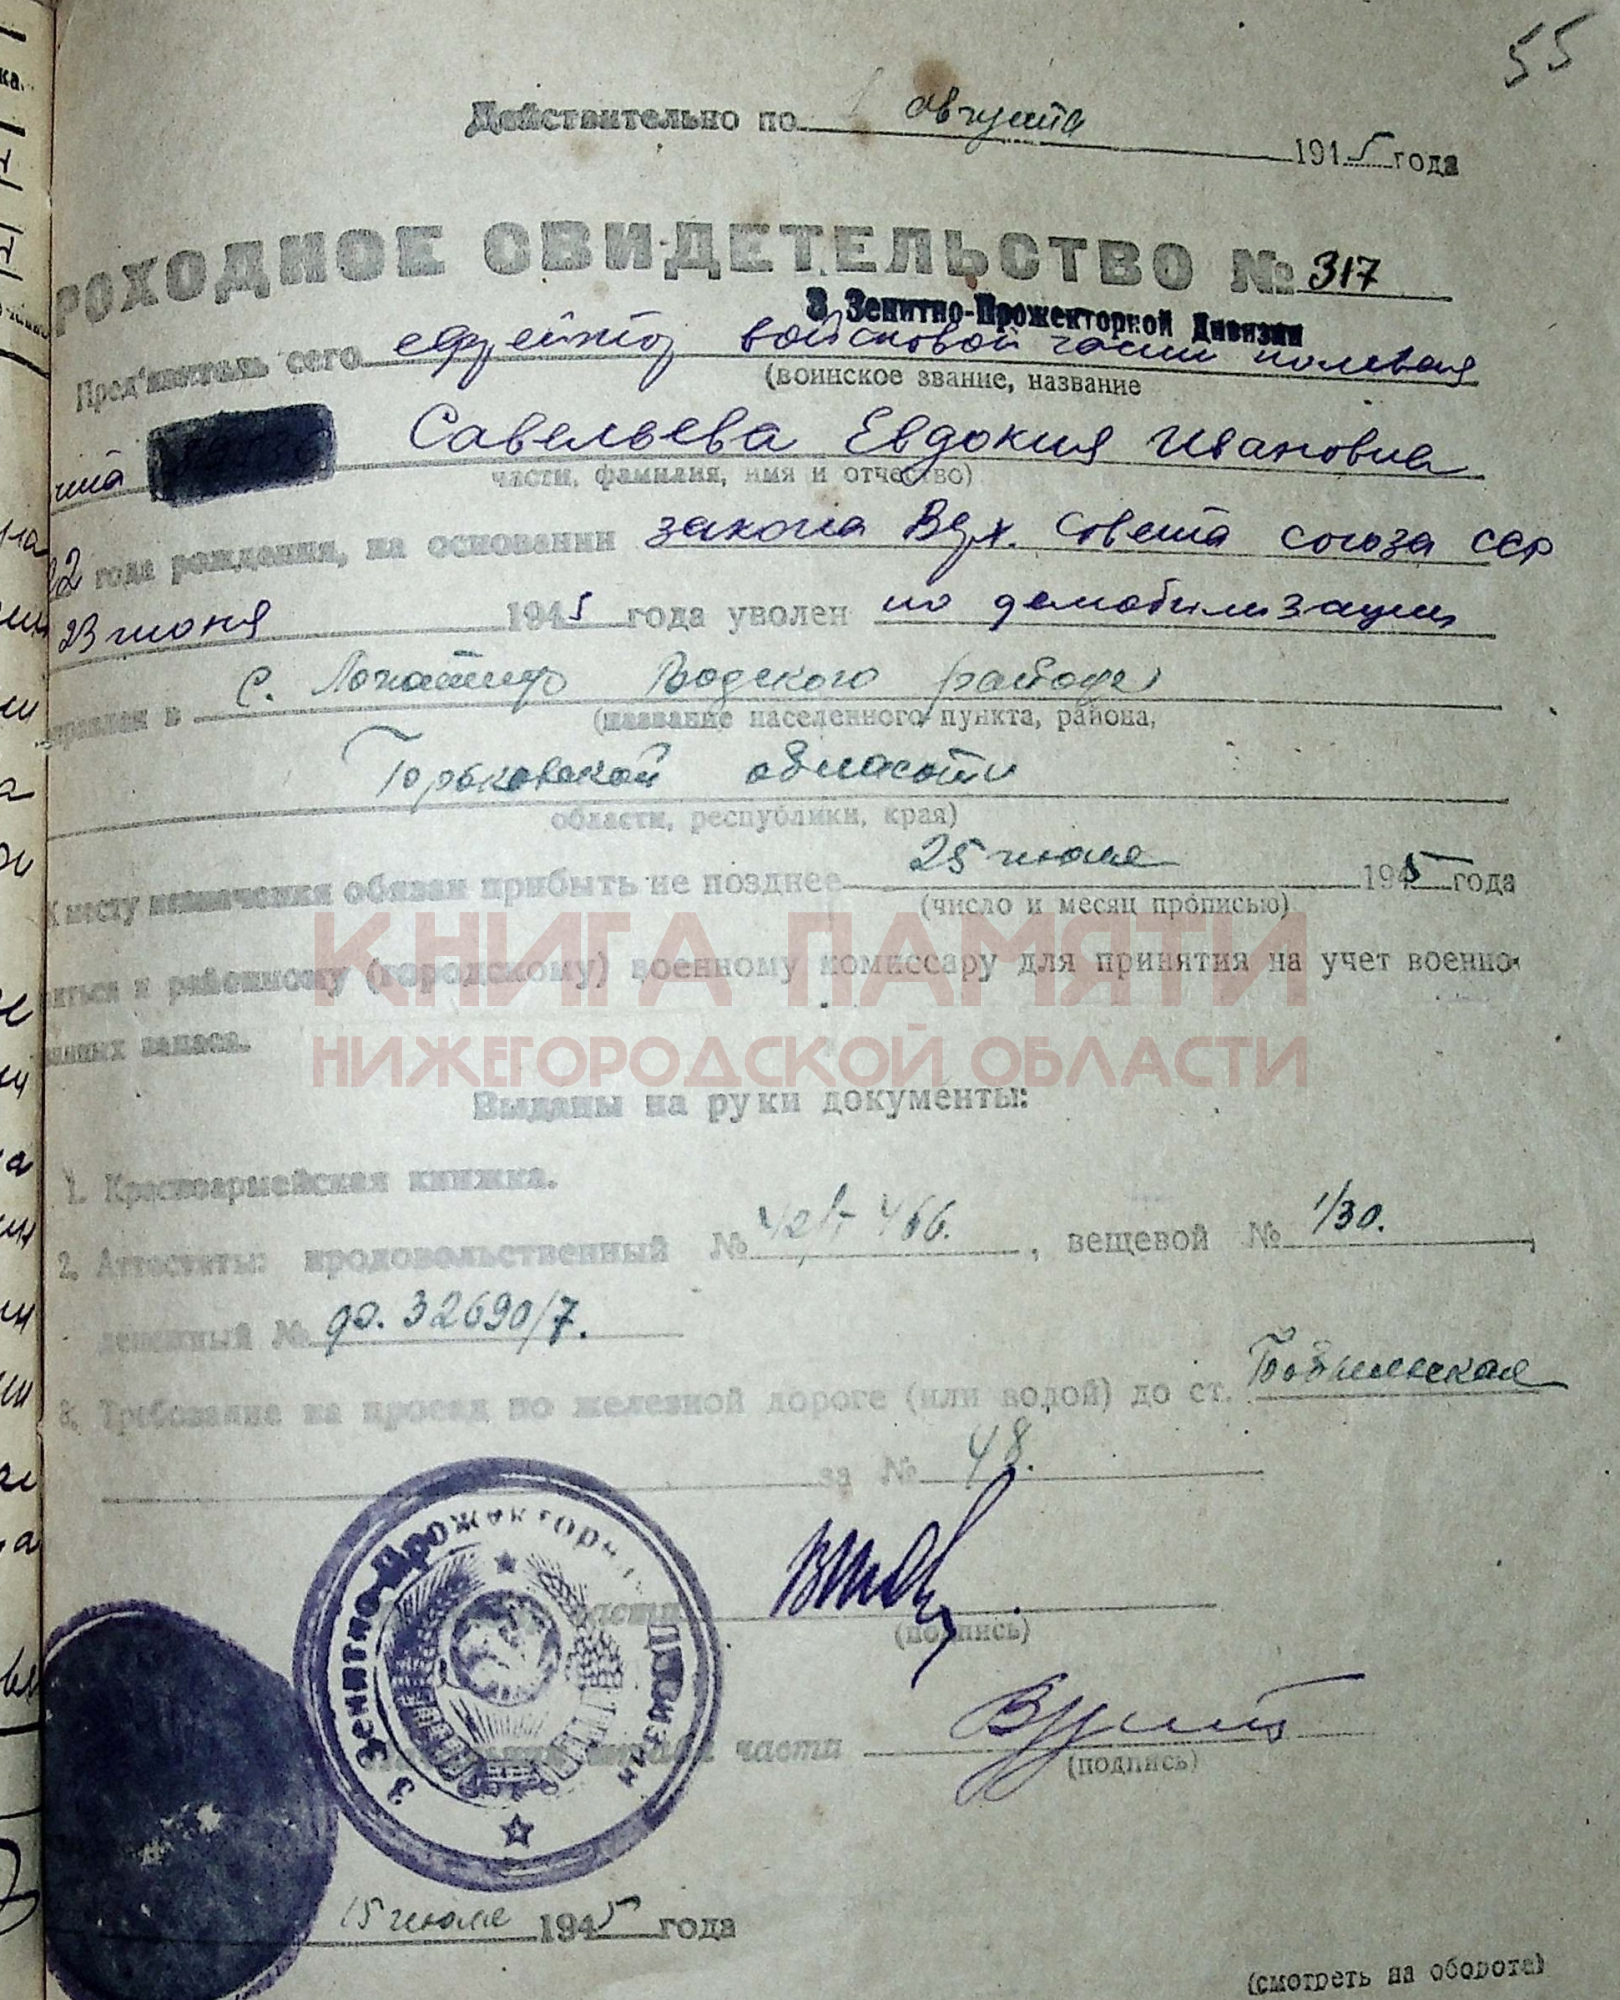 55
Действительно по 1 августа 1945 года
РОХОДНОЕ СВИДЕТЕЛЬСТВО № 317
3 Зенитно-Прожекторной Дивизии
Пред'явитель сего ефрейтор войсковой части полевая
(воинское звание, название
чта Савельева Евдокия Ивановна
части, фамилия, имя и отчество)
22 года рождения, на основании закона Верх. Совета Союза ССР
23 июня 1945 года уволен по демобилизации
правлен в с. Лопатино Водского района
(название населенного пункта, района,
Горьковской области
области, республики, края)
К месту назначения обязан прибыть не позднее 25 июля 1945 года
(число и месяц прописью)
виться к районному (городскому) военному комиссару для принятия на учет военно-
занных запаса.
КНИГА ПАМЯТИ
НИЖЕГОРОДСКОЙ ОБЛАСТИ
Выданы на руки документы:
1. Красноармейская книжка.
2. Аттестаты: продовольственный № 466. , вещевой № 1/30.
денежный № 32690/7.
3. Требование на проезд по железной дороге (или водой) до ст.
за № 48.
части
(подпись)
3 Зенитно-Прожекторная Дивизия
штаба части
(подпись)
15 июля 1945 года
(смотреть на обороте)